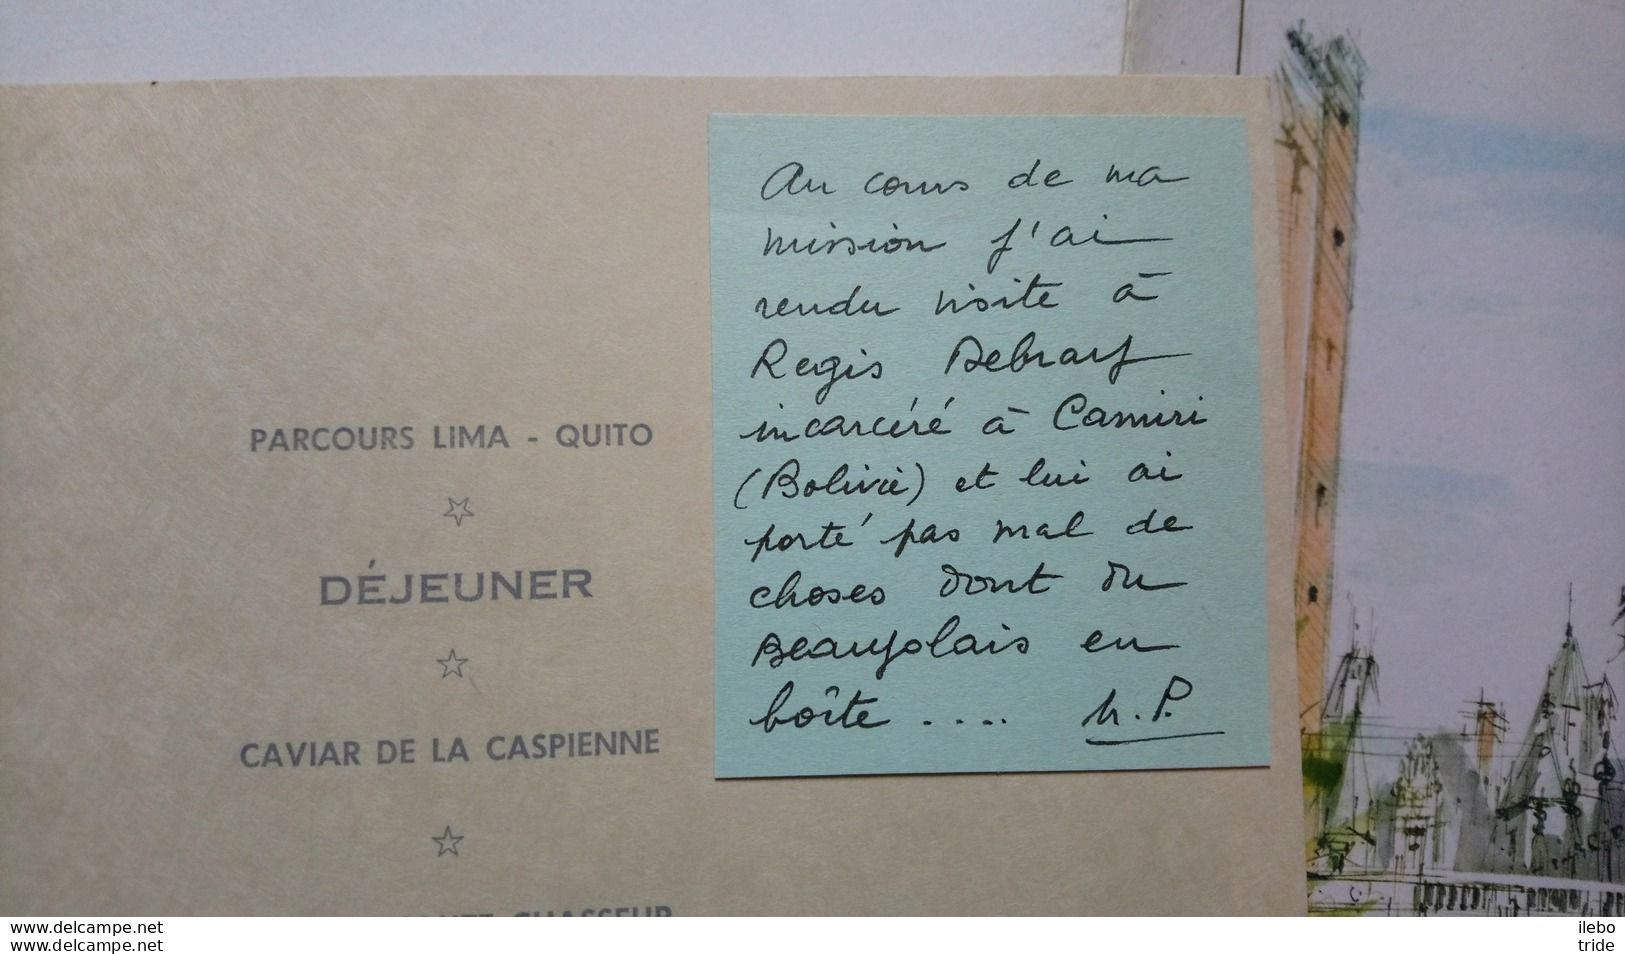 PARCOURS LIMA - QUITO
DÉJEUNER
CAVIAR DE LA CASPIENNE
CHASSEUR
Au cours de ma
mission j'ai
rendu visite à
Regis Debray
incarcéré à Camiri
(Bolivie) et lui ai
porté pas mal de
choses dont du
Beaujolais en
boîte .... M.P.
www.delcampe.net
www.delcampe.net
ilebo
tride